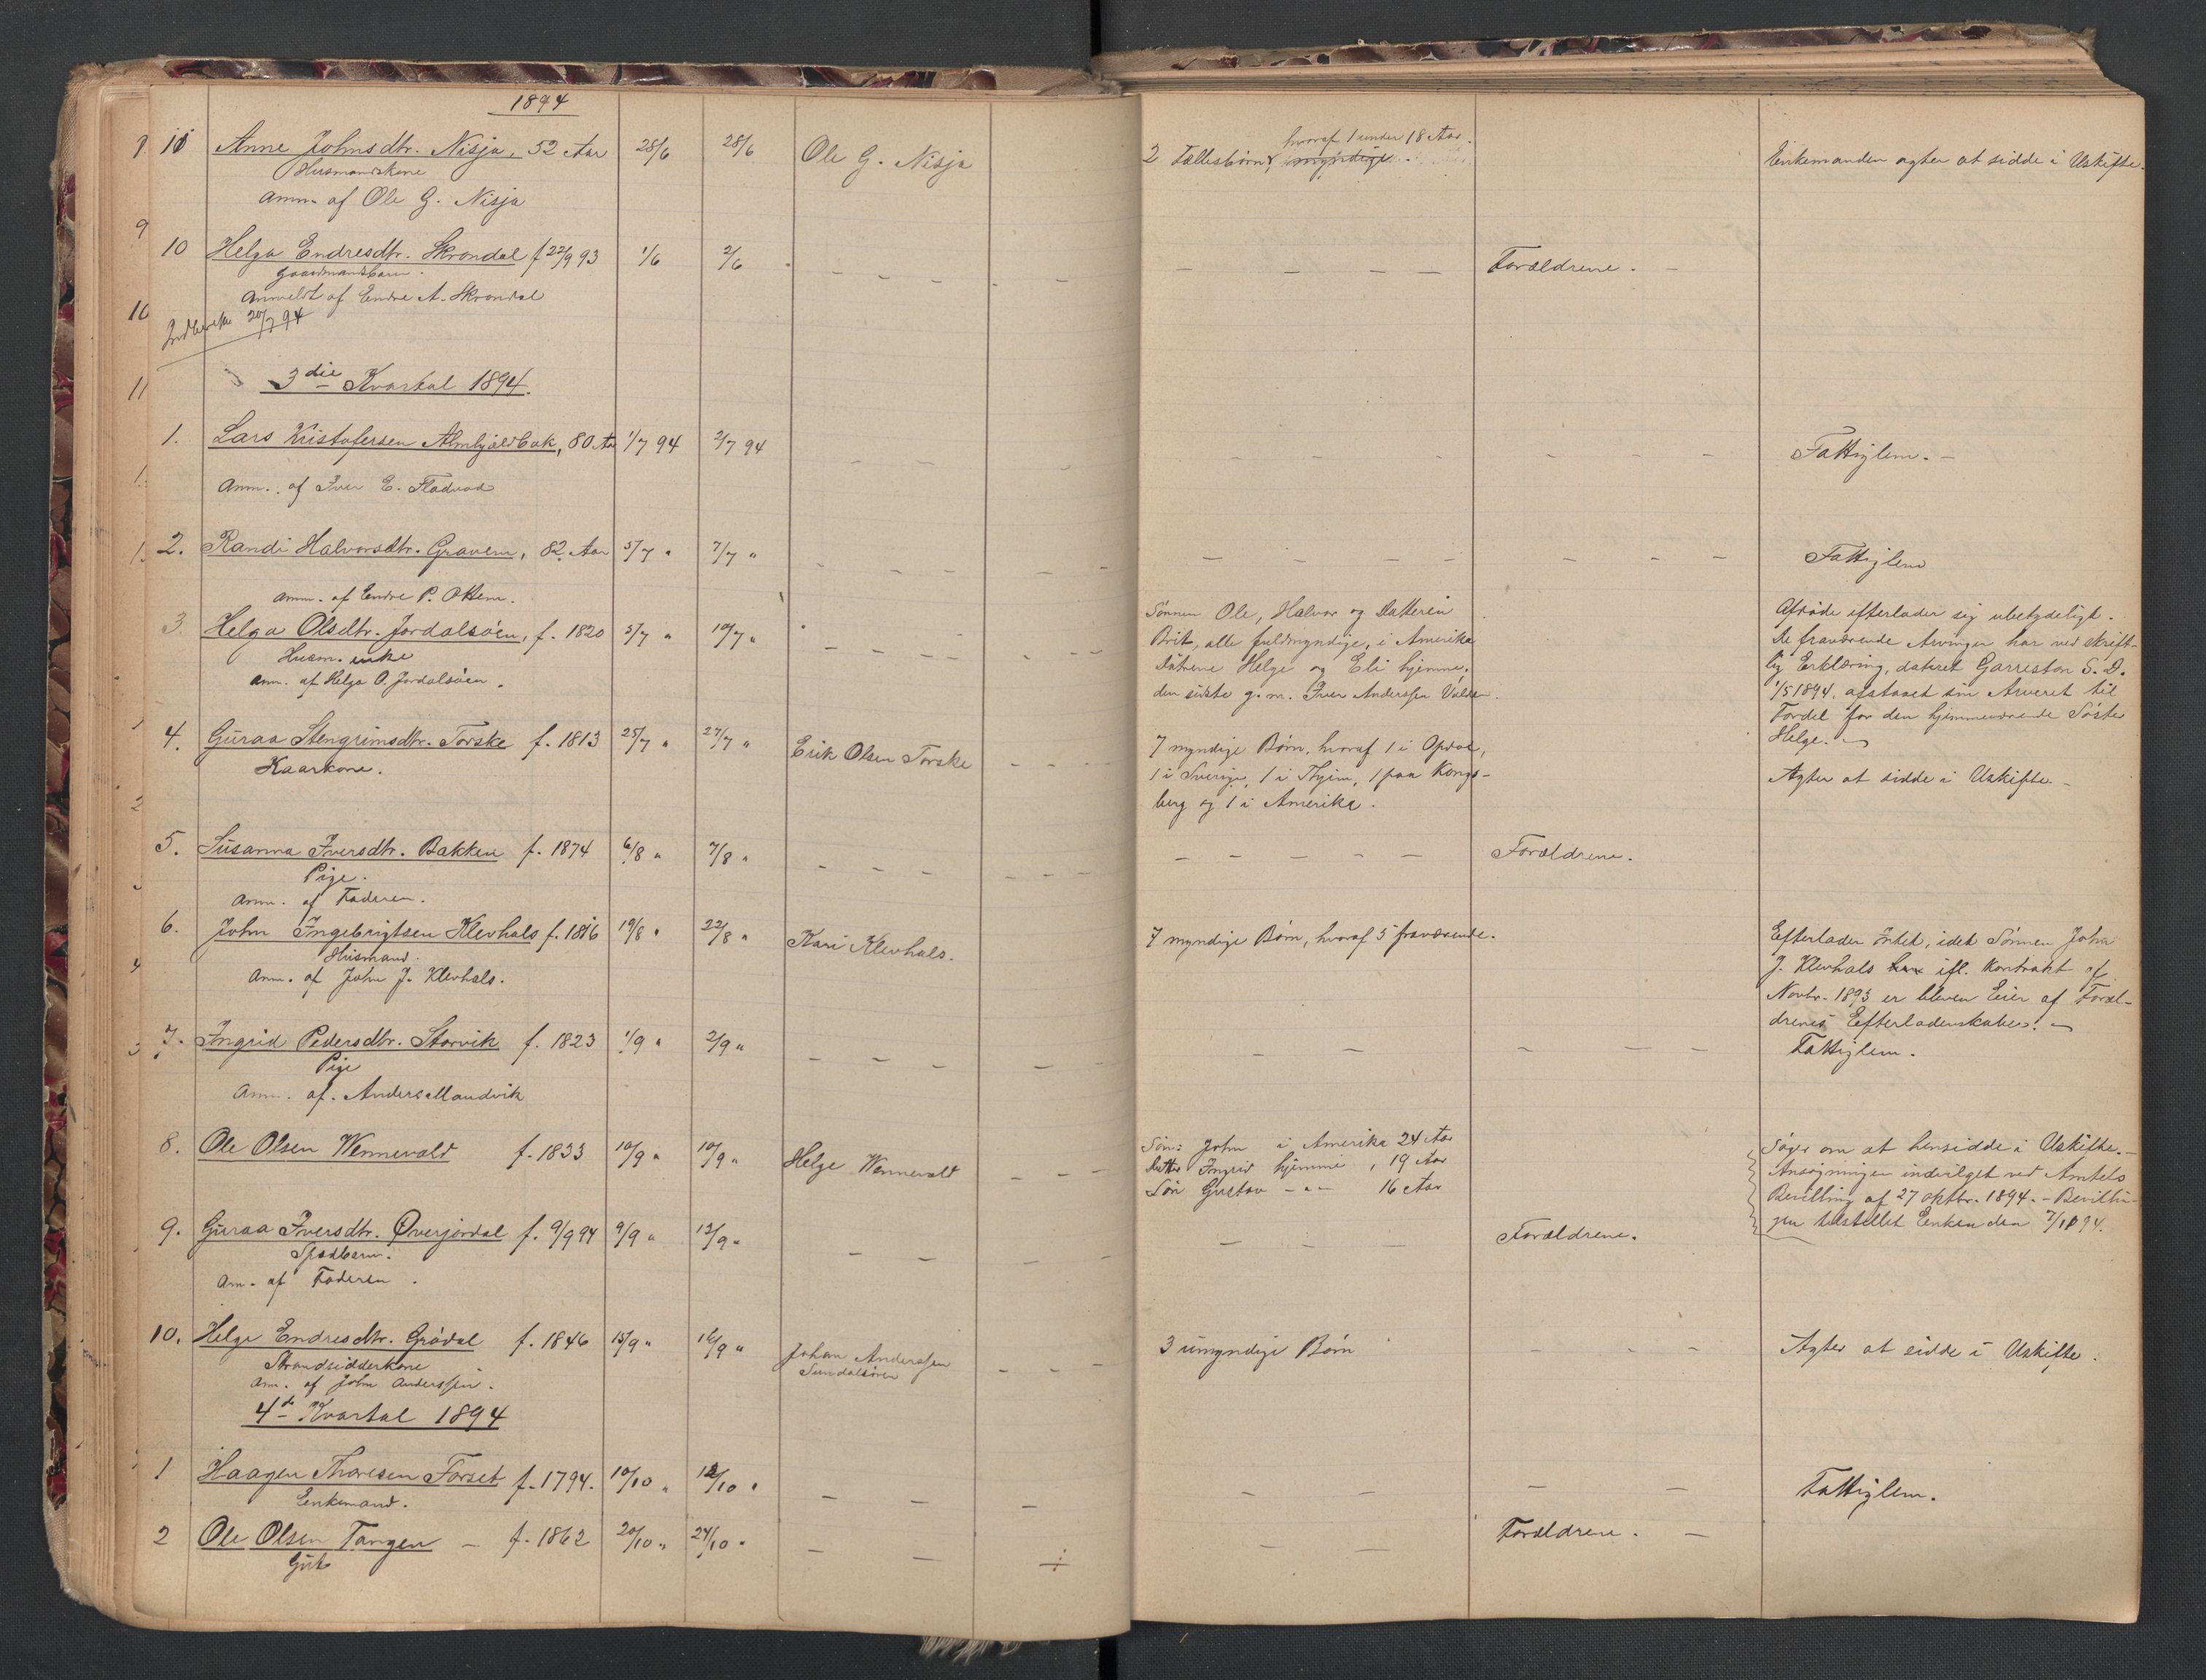 1894
11 Anne Johnsdtr. Nisja, 52 Aar 28/6 28/6 Ole G. Nisja 2 Fællesbørn, myndige. hvoraf 1 under 18 Aar. Enkemanden agter at sidde i Uskifte.
Husmandskone
Anm. af Ole G. Nisja
10 Helga Endresdtr. Skrondal f 22/9 93 1/6 2/6 - - - - - - - - Forældrene. -
Gaardmandsbarn.
Anmeldt af Endre A. Skrondal
20/7 94
3die Kvartal 1894.
1. Lars Kristofersen Almhjeldbak, 80 Aar 1/7 94 2/7 94 - - - - - - - - - Fattiglem. -
Anm. af Iver E. Fladvad
2. Randi Halvorsdtr. Gravem, 82 Aar 5/7 " 7/7 " - - - - - - - - - Fattiglem
Anm. af Endre P. Ottem.
3. Helga Olsdtr. Jordalsøen, f. 1820 5/7 " 10/7 " - - - - - -
Husm. enke
Anm. af Helga O. Jordalsøen.
Sønnen Ole, Halvor og Datteren
Brit, alle fuldmyndige, i Amerika
Døtrene Helge og Eli hjemme,
den sidste g. m. Iver Anderssen
Afdøde efterlader sig ubetydeligt.
De fraværende Arvinger har ved skrift-
lig Erklæring, dateret Garreston S. D.
1/5 1894, afstaaet sin Arveret til
Fordel for den hjemmeværende Søster
Helge.
4. Guraa Stengrimsdtr. Torske f. 1813 25/7 " 27/7 " Erik Olsen Torske - - - 7 myndige Børn, hvoraf 1 i Opdal,
Kaarkone.
1 i Sverige, 1 i Thjem, 1 paa Kongs-
berg og 1 i Amerika.
Agter at sidde i Uskifte. -
5. Susanna Iversdtr. Bakken f. 1874 6/8 " 7/8 " - - - - - - - - Forældrene.
Pige.
Anm. af Faderen.
6. John Ingebrigtsen Klevhals f. 1816 19/8 " 22/8 " Kari Klevhals. 7 myndige Børn, hvoraf 5 fraværende.
Husmand.
Anm. af John J. Klevhals.
Efterlader Intet, idet Sønnen John
J. Klevhals har ifl. Kontrakt af
Novbr. 1893 er bleven Eier af Foræl-
drenes Efterladenskaber.
7. Ingrid Pedersdtr. Storvik f. 1823 1/9 " 2/9 " - - - - - - - - - Fattiglem.
Pige
Anm. af. Anders Mandvik
8. Ole Olsen Wennevald f. 1833 10/9 " 10/9 " Helge Wennevald - -
Søn: John i Amerika 24 Aar
Datter Ingrid hjemme, 19 Aar
Søn Gustav - " - 16 Aar
Søger om at hensidde i Uskifte. -
Ansøgningen indvilget ved Amtets
Bevilling af 27 oktbr. 1894. - Bevillin-
gen tilstillet Enken den 7/11 94.
9. Guraa Iversdtr. Øverjordal f. 9/9 94 9/9 " 12/9 " - - - - - - Forældrene.
Spædbarn.
Am. af Faderen.
10. Helge Endresdtr. Grødal f. 1846 15/9 " 16/9 " Johan Anderssen - - - 3 umyndige Børn - - - Agter at sidde i Uskifte.
Strandsidderkone Sundalsøren
Am. af John Anderssen.
4de Kvartal 1894
1 Haagen Thoresen Forset f. 1794. 10/10 " 12/10 " - - - - - - - - Fattiglem.
Enkemand.
2 Ole Olsen Tangen - f. 1862 20/10 " 24/10 " - - ÷ - - Forældrene. -
Gut